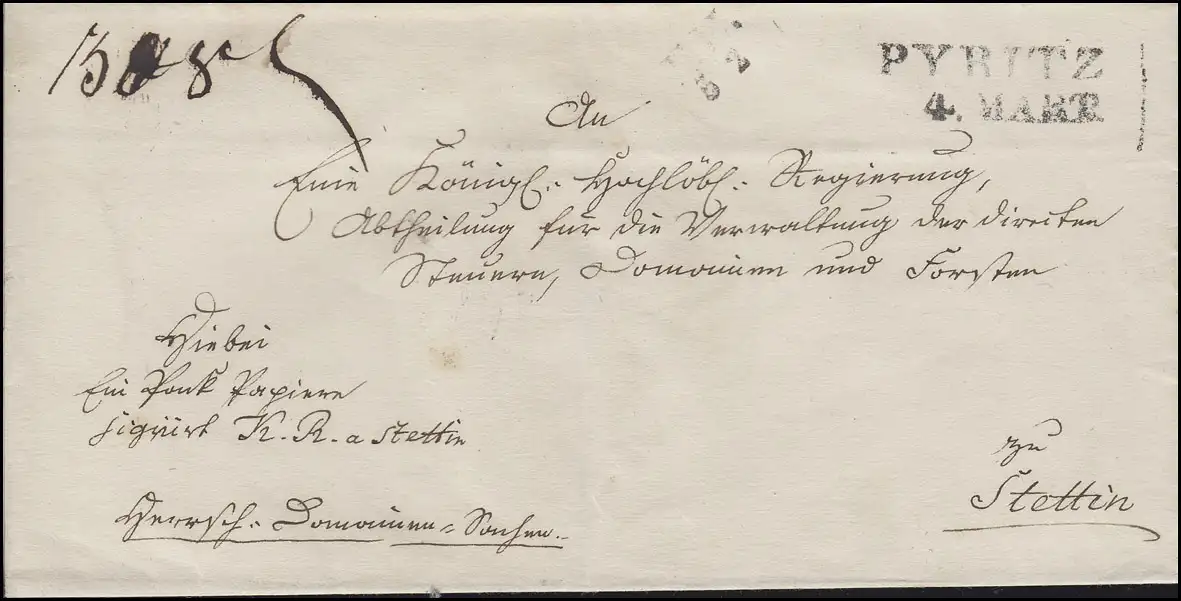 PYRITZ
4. MAERZ
An
Eine Königl. Hochlöbl. Regierung,
Abtheilung für die Verwaltung der directen
Steuern, Domainen und Forsten
Hiebei
Ein Pack Papiere
signirt K. R. a Stettin
zu
Stettin
Herrsch. Domainen-Sachen.